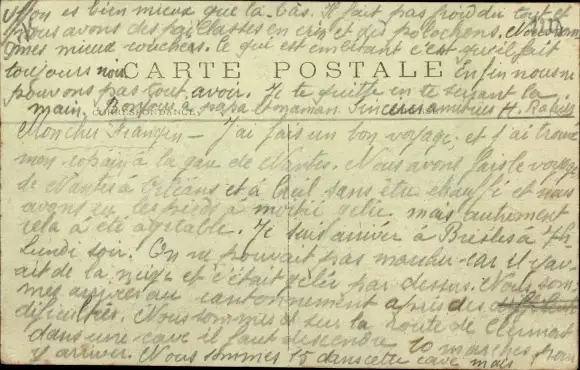 on es bien mieux que la bas. Il fait pas froid du tout et
nous avons des paillasses en crin et des polochons. Nous som
mes mieux couchers. Ce qui est embêtant c'est qu'il fait
toujours noir
CARTE POSTALE
Enfin nous ne
pouvons pas tout avoir. Je te quitte en te serrant la
main. Bonjour à papa maman. Sincères amitiés H.
CORRESPONDANCE
Mon cher Francis — J'ai fais un bon voyage, et j'ai trouvé
mon à la gare de Nantes. Nous avons fais le voyage
de Nantes à Orléans et à Creil sans être chauffé et nous
avons eu les pieds à moitié gelée, mais autrement
cela a été agréable. Je suis arriver à Bresles à 7h
Lundi soir. On ne pouvait pas marcher car il y av
ait de la neige et c'était gelée par dessus. Nous som
mes arriver au cantonnement après des
dificultées. Nous sommes et sur la route de Clermont
dans une cave il faut descendre 10 marches pour
y arriver. Nous sommes 15 dans cette cave mais